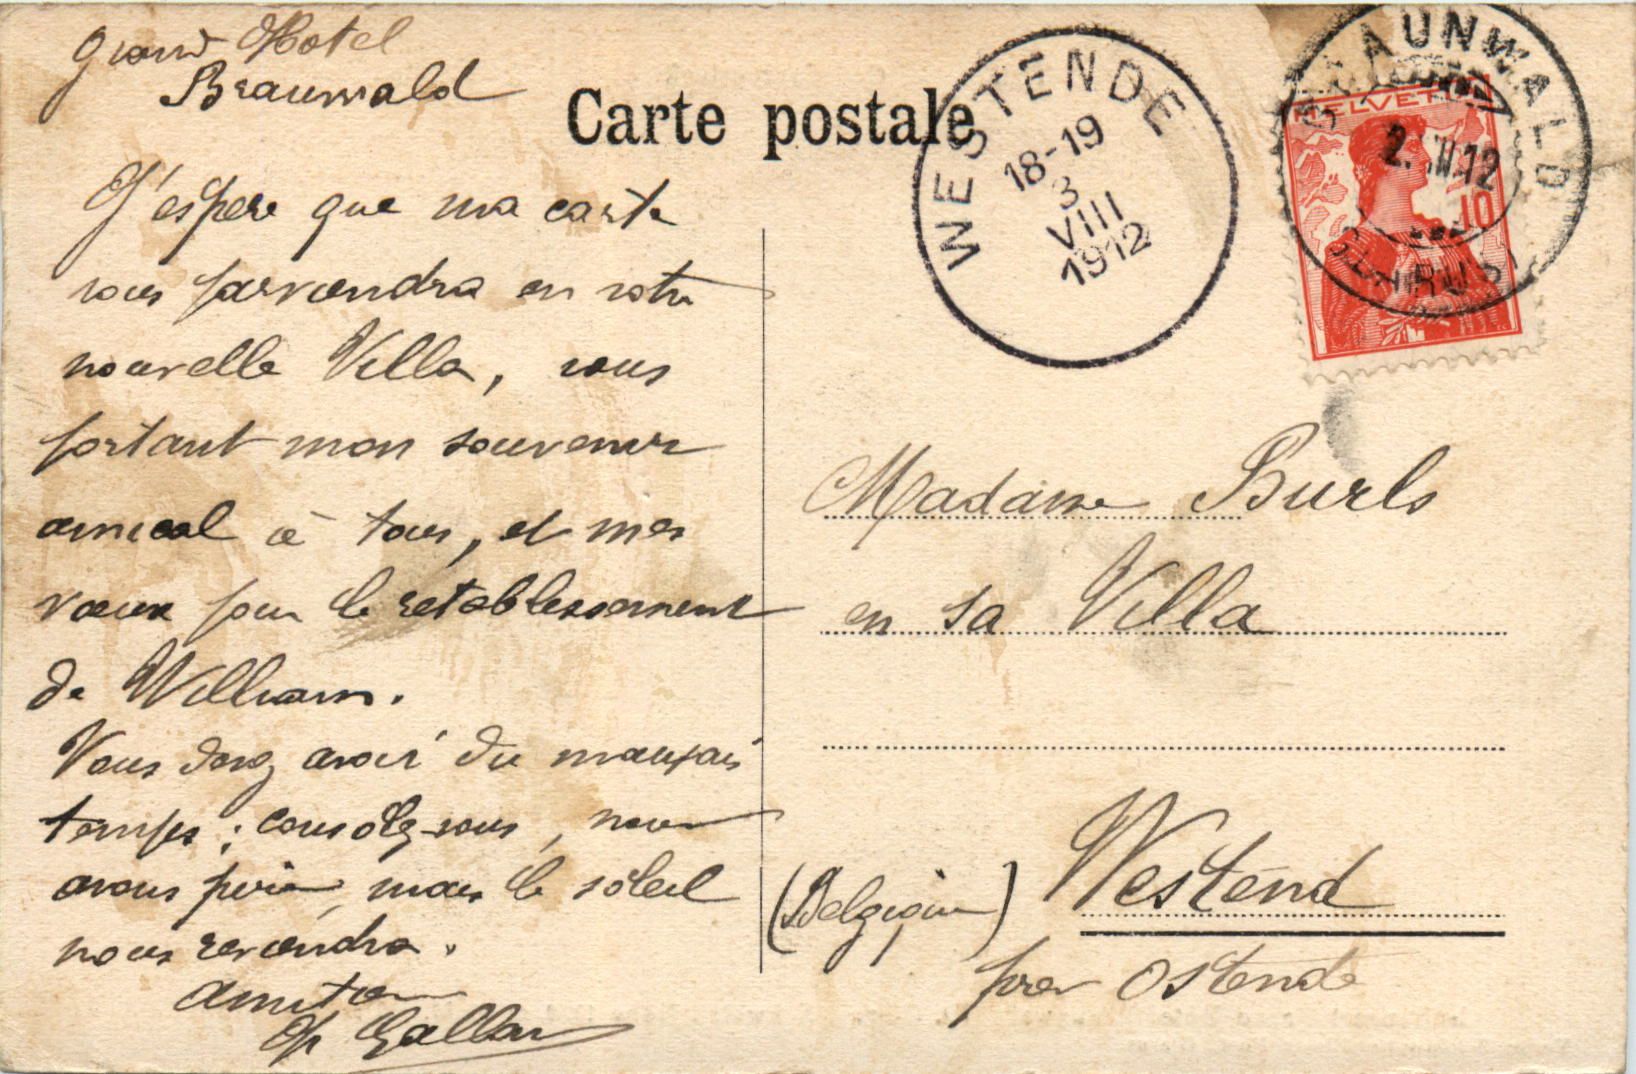 Grand Hotel
Braunwald
Carte postale
J'espere que ma carte
vous parviendra en votre
nouvelle Villa, vous
portant mon souvenir
amical à tous, et mes
vœux pour le retablissement
de William.
Vous devez avoir du mauvais
temps; consolez-vous, nous
avons pire, mais le soleil
nous reviendra.
Amitiés
Gallan
WESTENDE
18-19
3
VIII
1912
BRAUNWALD
HELVETIA
2. 12
10
(GLARUS)
Madame Burls
en sa Villa
Westend
(Belgique)
près Ostende